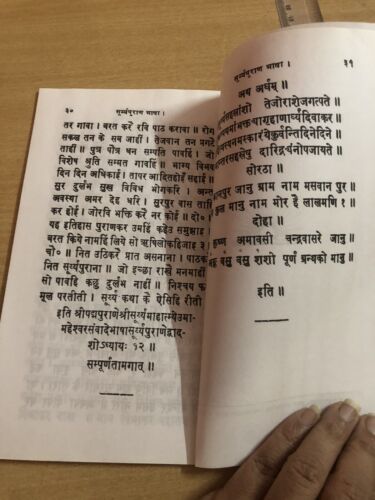 ३० सूर्य्यपुराण भाषा ।
तर गावा । बरत करैं रवि पाठ करावा ॥ रोग
सकल तन के सब जाहीं । तेजवान तन मगदे
ताहीं ॥ पुत्र पौत्र धन सम्पति पावहिं । जो
विशेष श्रुति सम्मत गावहिं ॥ भाग्य विमल
दिन दिन अधिकाई । तापर आदितहोई सहाई ॥
सुर दुर्लभ सुख विविध भोगकरि । अन्त
अवस्था अमर देह धरि ॥ सुरपुर बास ताहि
कर होई । जोरवि भक्ति करैं नर कोई ॥ दो०
यह इतिहास पुराणकर उमहिं कहेउ समुझाइ ।
बरत किये नामहिं लिये सो ऋषिलोकहिजाइ ३
चौ० ॥ नित उठिकरै प्रात असनाना । पाठकरै
नित सूर्य्यपुराना ॥ जो इच्छा राखे मनमाहीं
सो पावहिं कछु दुर्लभ नाहीं ॥ निश्चय फल
मूल परतीती । सूर्य्य कथा के ऐसिहि रीती
इति श्रीपद्मपुराणेश्रीसूर्य्यमाहात्म्येउमा-
महेश्वरसंवादेभाषासूर्य्यपुराणेद्वाद-
शोऽध्यायः १२ ॥
सम्पूर्णतामगात् ॥
सूर्य्यपुराण भाषा । ३१
अथ अर्घम् ॥
तेजोराशेजगत्पते ॥
दिवाकर
दिनेदिने
दारिद्र्यंनोपजायते ॥
सोरठा ।
पुर जानु ग्राम नाम मसवान पुर
मानु नाम मोर है लालमणि १
दोहा ।
कृष्ण अमावसी चन्द्रवासरे जानु ।
वसु वसु शशी पूर्ण ग्रन्थको मानु ॥
इति ॥